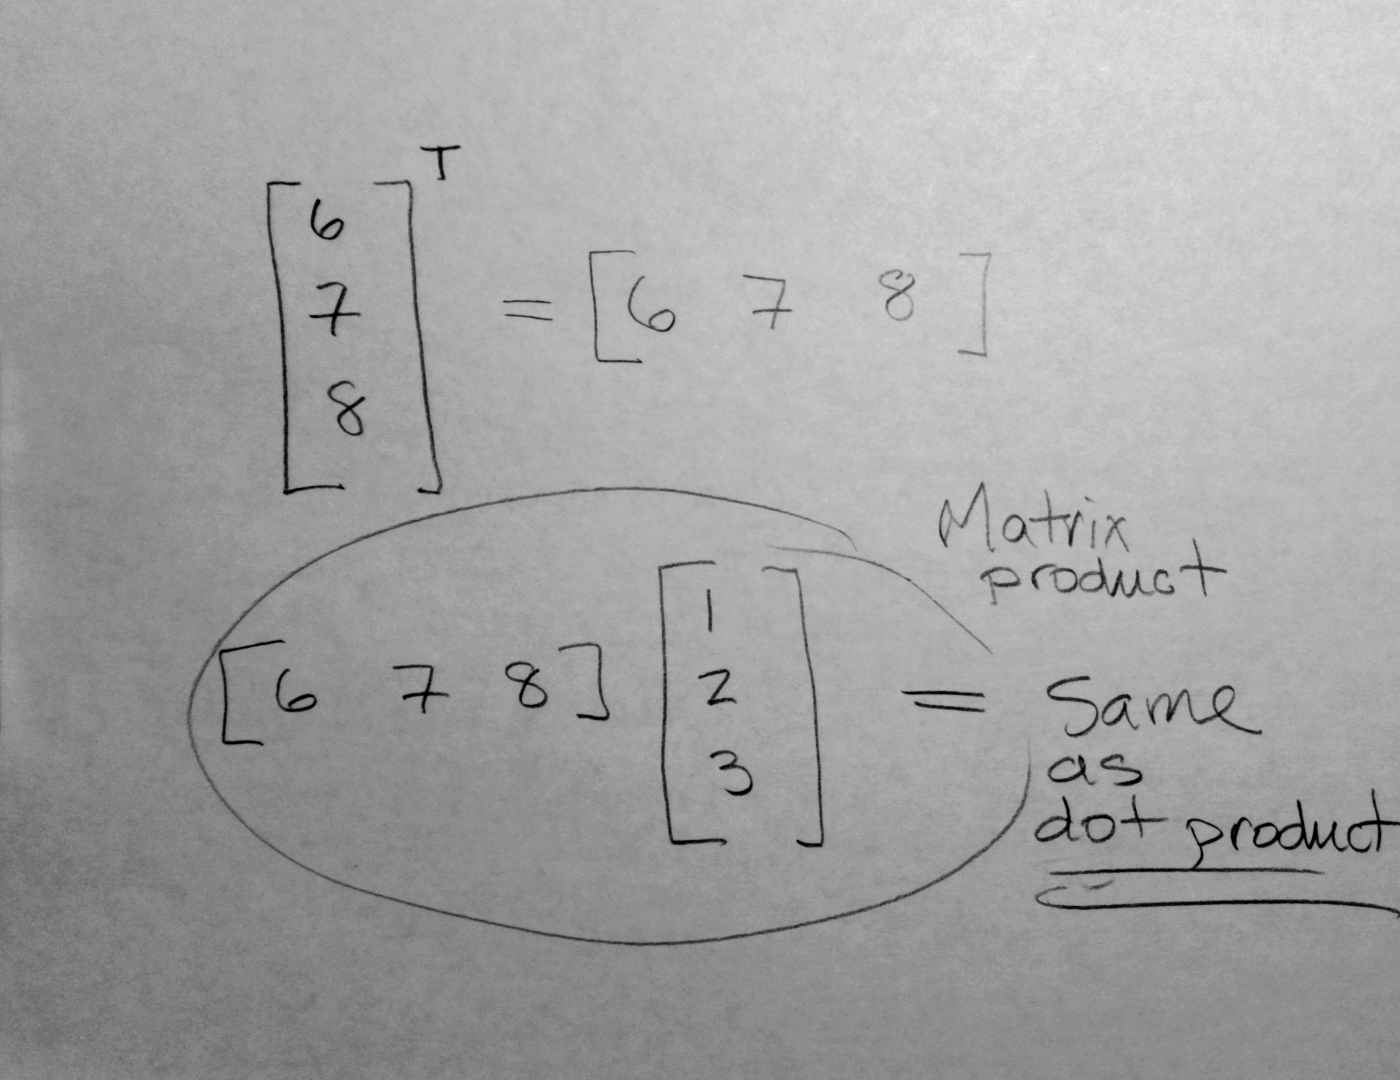 T
6
7 = [6 7 8]
8
Matrix
product
1
[6 7 8] 2 = Same
3 as
dot product